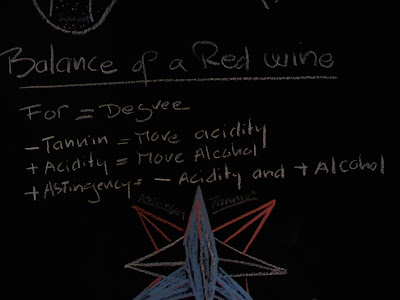 Balance of a Red wine
For = Degree
- Tannin = More acidity
+ Acidity = More Alcohol
+ Astingency = - Acidity and + Alcohol
Tannic